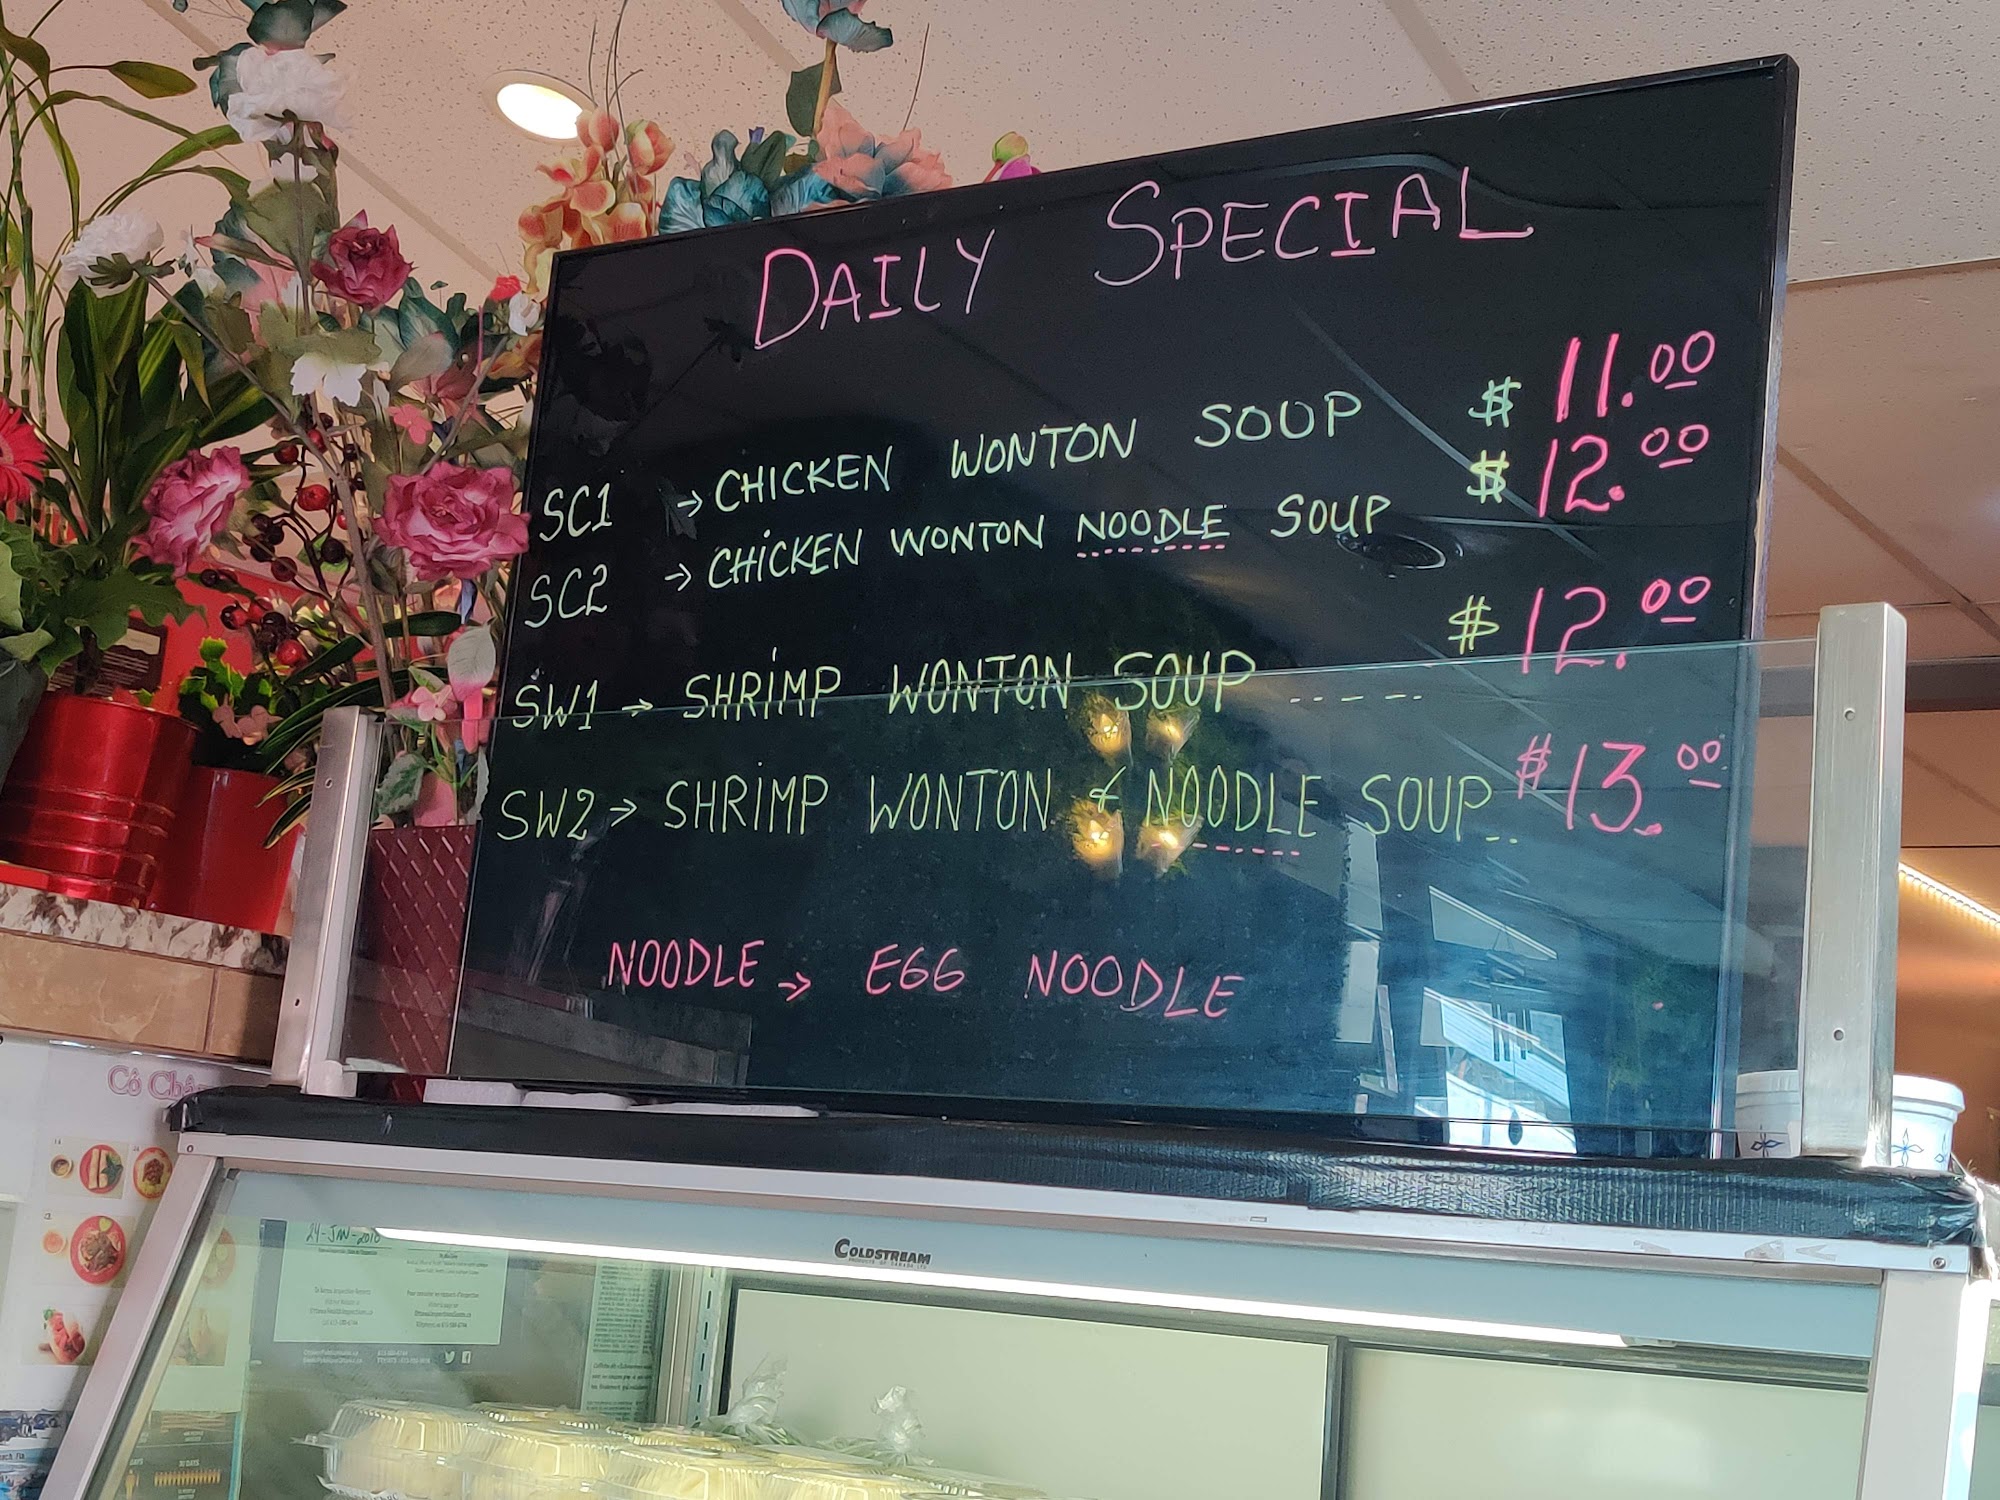 DAILY SPECIAL
SC1 → CHICKEN WONTON SOUP $ 11.00
SC2 → CHICKEN WONTON NOODLE SOUP $ 12.00
SW1 → SHRIMP WONTON SOUP ---- $ 12.00
SW2 → SHRIMP WONTON & NOODLE SOUP... $ 13.00
NOODLE → EGG NOODLE
COLDSTREAM
PRODUCTS OF CANADA LTD.
24-JAN-2018